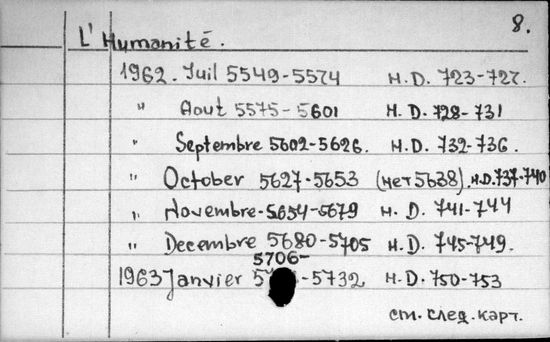 8.
L'Humanité.
1962. Juil 5549-5574 н.D. 723-727.
" Aout 5575-5601 н.D. 728-731
" Septembre 5602-5626. н.D. 732-736.
" October 5627-5653 (нет 5638). н.D. 737-740
" Novembre-5654-5679 н.D. 741-744
" Decembre 5680-5705 н.D. 745-749.
5706-
1963 Janvier -5732 н.D. 750-753
см. след. карт.